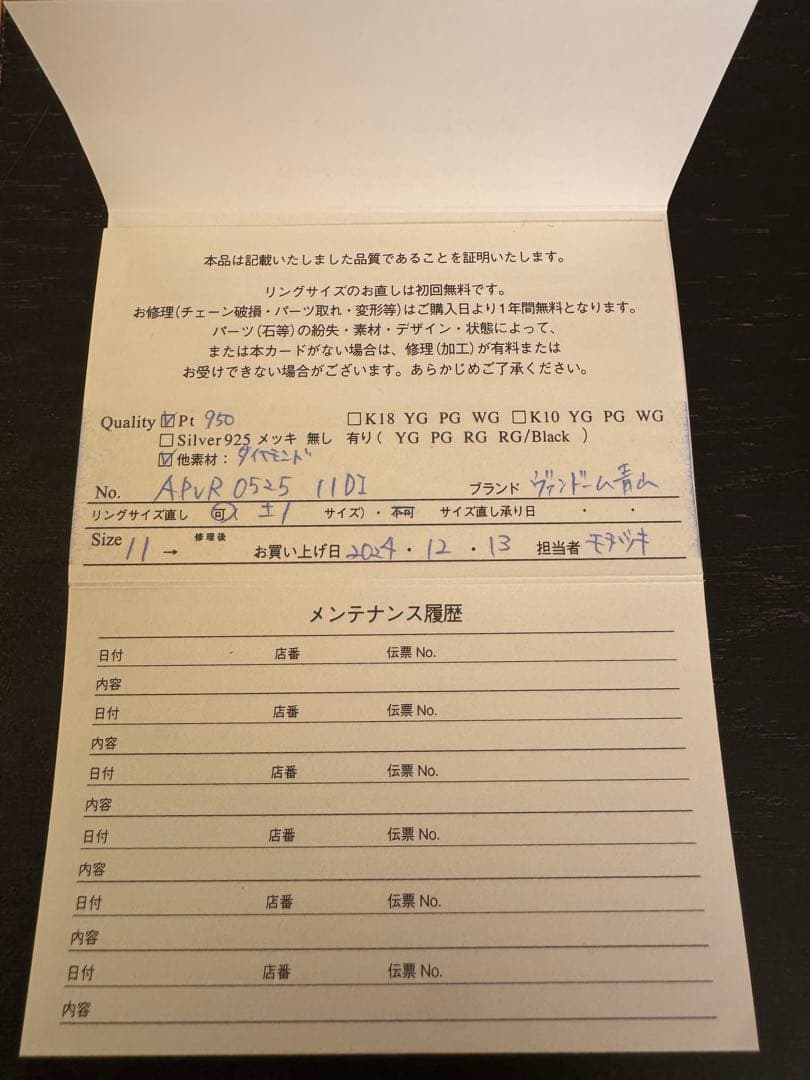 本品は記載いたしました品質であることを証明いたします。
リングサイズのお直しは初回無料です。
お修理(チェーン破損・パーツ取れ・変形等)はご購入日より1年間無料となります。
パーツ(石等)の紛失・素材・デザイン・状態によって、
または本カードがない場合は、修理(加工)が有料または
お受けできない場合がございます。あらかじめご了承ください。
Quality ☑Pt 950 □K18 YG PG WG □K10 YG PG WG
□Silver925 メッキ 無し 有り( YG PG RG RG/Black )
☑他素材：ダイヤモンド
No. APVR 0525 11DI ブランド ヴァンドーム青山
リングサイズ直し 可( ±1 サイズ)・不可 サイズ直し承り日 ・ ・
Size 11 → 修理後 お買い上げ日 2024・12・13 担当者 モチヅキ
メンテナンス履歴
日付 店番 伝票 No.
内容
日付 店番 伝票 No.
内容
日付 店番 伝票 No.
内容
日付 店番 伝票 No.
内容
日付 店番 伝票 No.
内容
日付 店番 伝票 No.
内容